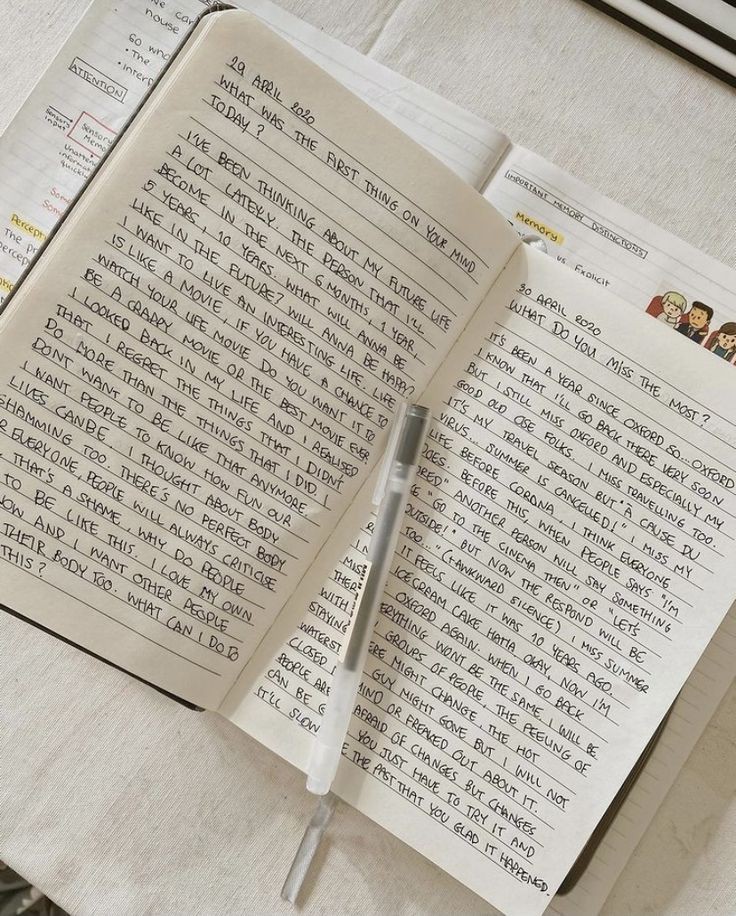 we can
house
So who
• The
• interf
ATTENTION
Sensory
input
Sensory
Memo
Unatten
informat
quickly
Some
Some
Percept
the pr
percep
29 APRIL 2020
WHAT WAS THE FIRST THING ON YOUR MIND
TODAY?
I'VE BEEN THINKING ABOUT MY FUTURE LIFE
A LOT LATELY. THE PERSON THAT I'LL
BECOME IN THE NEXT 6 MONTHS, 1 YEAR,
5 YEARS, 10 YEARS. WHAT WILL ANNA BE
LIKE IN THE FUTURE? WILL ANNA BE HAPPY?
I WANT TO LIVE AN INTERESTING LIFE. LIFE
IS LIKE A MOVIE, IF YOU HAVE A CHANCE TO
WATCH YOUR LIFE MOVIE DO YOU WANT IT TO
BE A CRAPPY MOVIE OR THE BEST MOVIE EVER
I LOOKED BACK IN MY LIFE AND I REALISED
THAT I REGRET THE THINGS THAT I DIDNT
DO MORE THAN THE THINGS THAT I DID. I
DONT WANT TO BE LIKE THAT ANYMORE.
I WANT PEOPLE TO KNOW HOW FUN OUR
LIVES CAN BE. I THOUGHT ABOUT BODY
SHAMMING TOO. THERE'S NO PERFECT BODY
R EVERYONE, PEOPLE WILL ALWAYS CRITICISE
THAT'S A SHAME. WHY DO PEOPLE
TO BE LIKE THIS. I LOVE MY OWN
OW AND I WANT OTHER PEOPLE
THEIR BODY TOO. WHAT CAN I DO TO
THIS?
IMPORTANT MEMORY DISTINCTIONS
Memory
vs Explicit
30 APRIL 2020
WHAT DO YOU MISS THE MOST?
IT'S BEEN A YEAR SINCE OXFORD SO... OXFORD
I KNOW THAT I'LL GO BACK THERE VERY SOON
BUT I STILL MISS OXFORD AND ESPECIALLY MY
GOOD OLD OSE FOLKS. I MISS TRAVELLING TOO.
IT'S MY TRAVEL SEASON BUT "A CAUSE DU
VIRUS... SUMMER IS CANCELLED!" I MISS MY
LIFE BEFORE CORONA, I THINK EVERYONE
DOES. BEFORE THIS, WHEN PEOPLE SAYS "I'M
RED" ANOTHER PERSON WILL SAY SOMETHING
E "GO TO THE CINEMA THEN" OR "LET'S
OUTSIDE!" BUT NOW THE RESPOND WILL BE
TOO..." (*AWKWARD SILENCE) I MISS SUMMER
IT FEELS LIKE IT WAS 10 YEARS AGO.
MISS ICECREAM CAKE HAHA OKAY, NOW I'M
THER OXFORD AGAIN. WHEN I GO BACK
WITH ERYTHING WONT BE THE SAME. I WILL BE
STAYING GROUPS OF PEOPLE, THE FEELING OF
WATERST ERE MIGHT CHANGE. THE HOT
CLOSED GUY MIGHT GONE BUT I WILL NOT
PEOPLE ARE MIND OR FREAKED OUT ABOUT IT.
CAN BE AFRAID OF CHANGES BUT CHANGES
IT'LL SLOW YOU JUST HAVE TO TRY IT AND
E THE PAST THAT YOU GLAD IT HAPPENED.